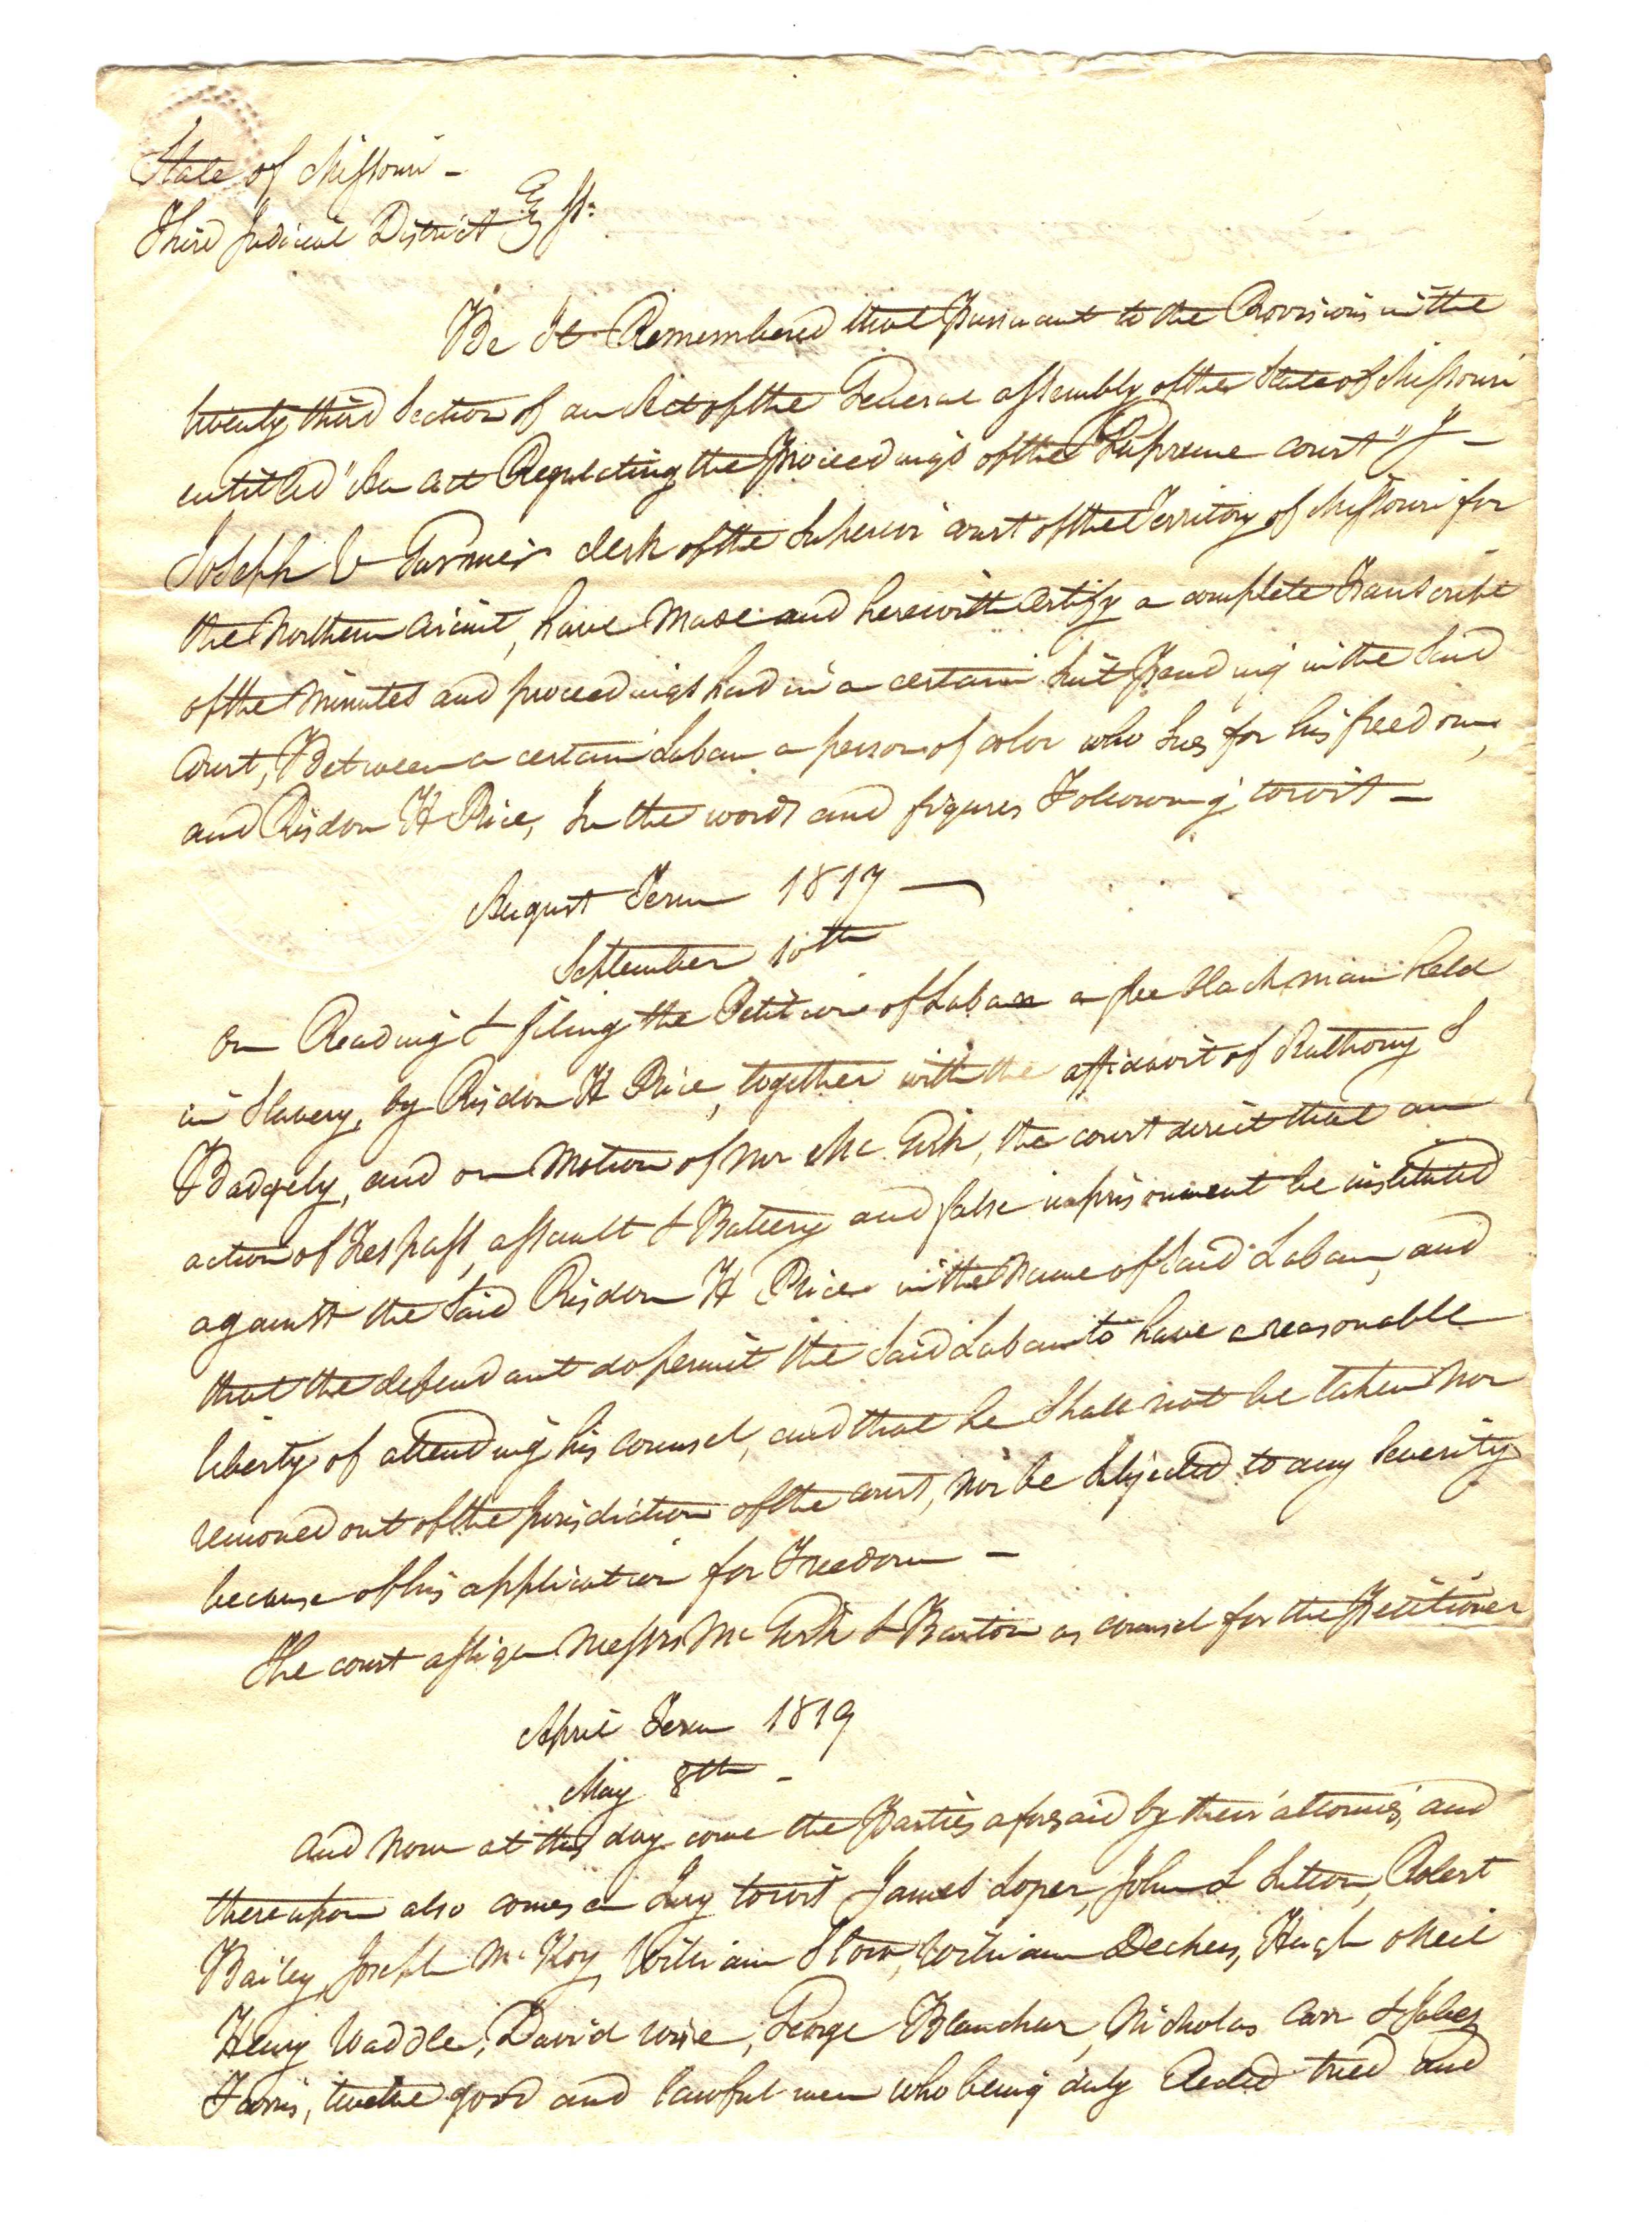 State of Missouri -
Third Judicial District } Ss:
Be It Remembered that Pursuant to the Provisions in the
twenty third Section of an Act of the General assembly of the State of Missouri
entitled "An act Regulating the Proceedings of the Supreme court" I -
Joseph V Garnier clerk of the Superior court of the Territory of Missouri for
the Northern circuit, have made and herewith certify a complete Transcript
of the minutes and proceedings had in a certain Suit Pending in the Said
Court, Between a certain Laban a person of color who Sues for his freedom,
and Risdon H Price, In the words and figures Following, towit -
August Term 1817 -
September 10th
On Reading & filing the Petition of Laban a free Black man held
in Slavery, by Risdon H Price, together with the affidavit of Anthony S
Badgely, and on motion of Mr McGirk, the court direct that an
action of Trespass, assault & Battery and false imprisonment be instituted
against the Said Risdon H Price in the Name of Said Laban, and
that the defendant do permit the Said Laban to have a reasonable
liberty of attending his counsel, and that he Shall not be taken nor
removed out of the Jurisdiction of the court, nor be Subjected to any Severity
because of his application for Freedom -
The court assign Messrs McGirk & Barton as counsel for the Petitioner
April Term 1819
May 8th -
And Now at this day come the Parties aforesaid by their attornies, and
thereupon also comes a Jury towit James Loper, John L Sutton, Robert
Bailey, Joseph McKoy, William Stow, William Deckers, Hugh oNeil
Henry Waddle, David Wise, George Blanchar, Nicholas Carr & Jabez
Farris, twelve good and lawful men who being duly Elected tried and